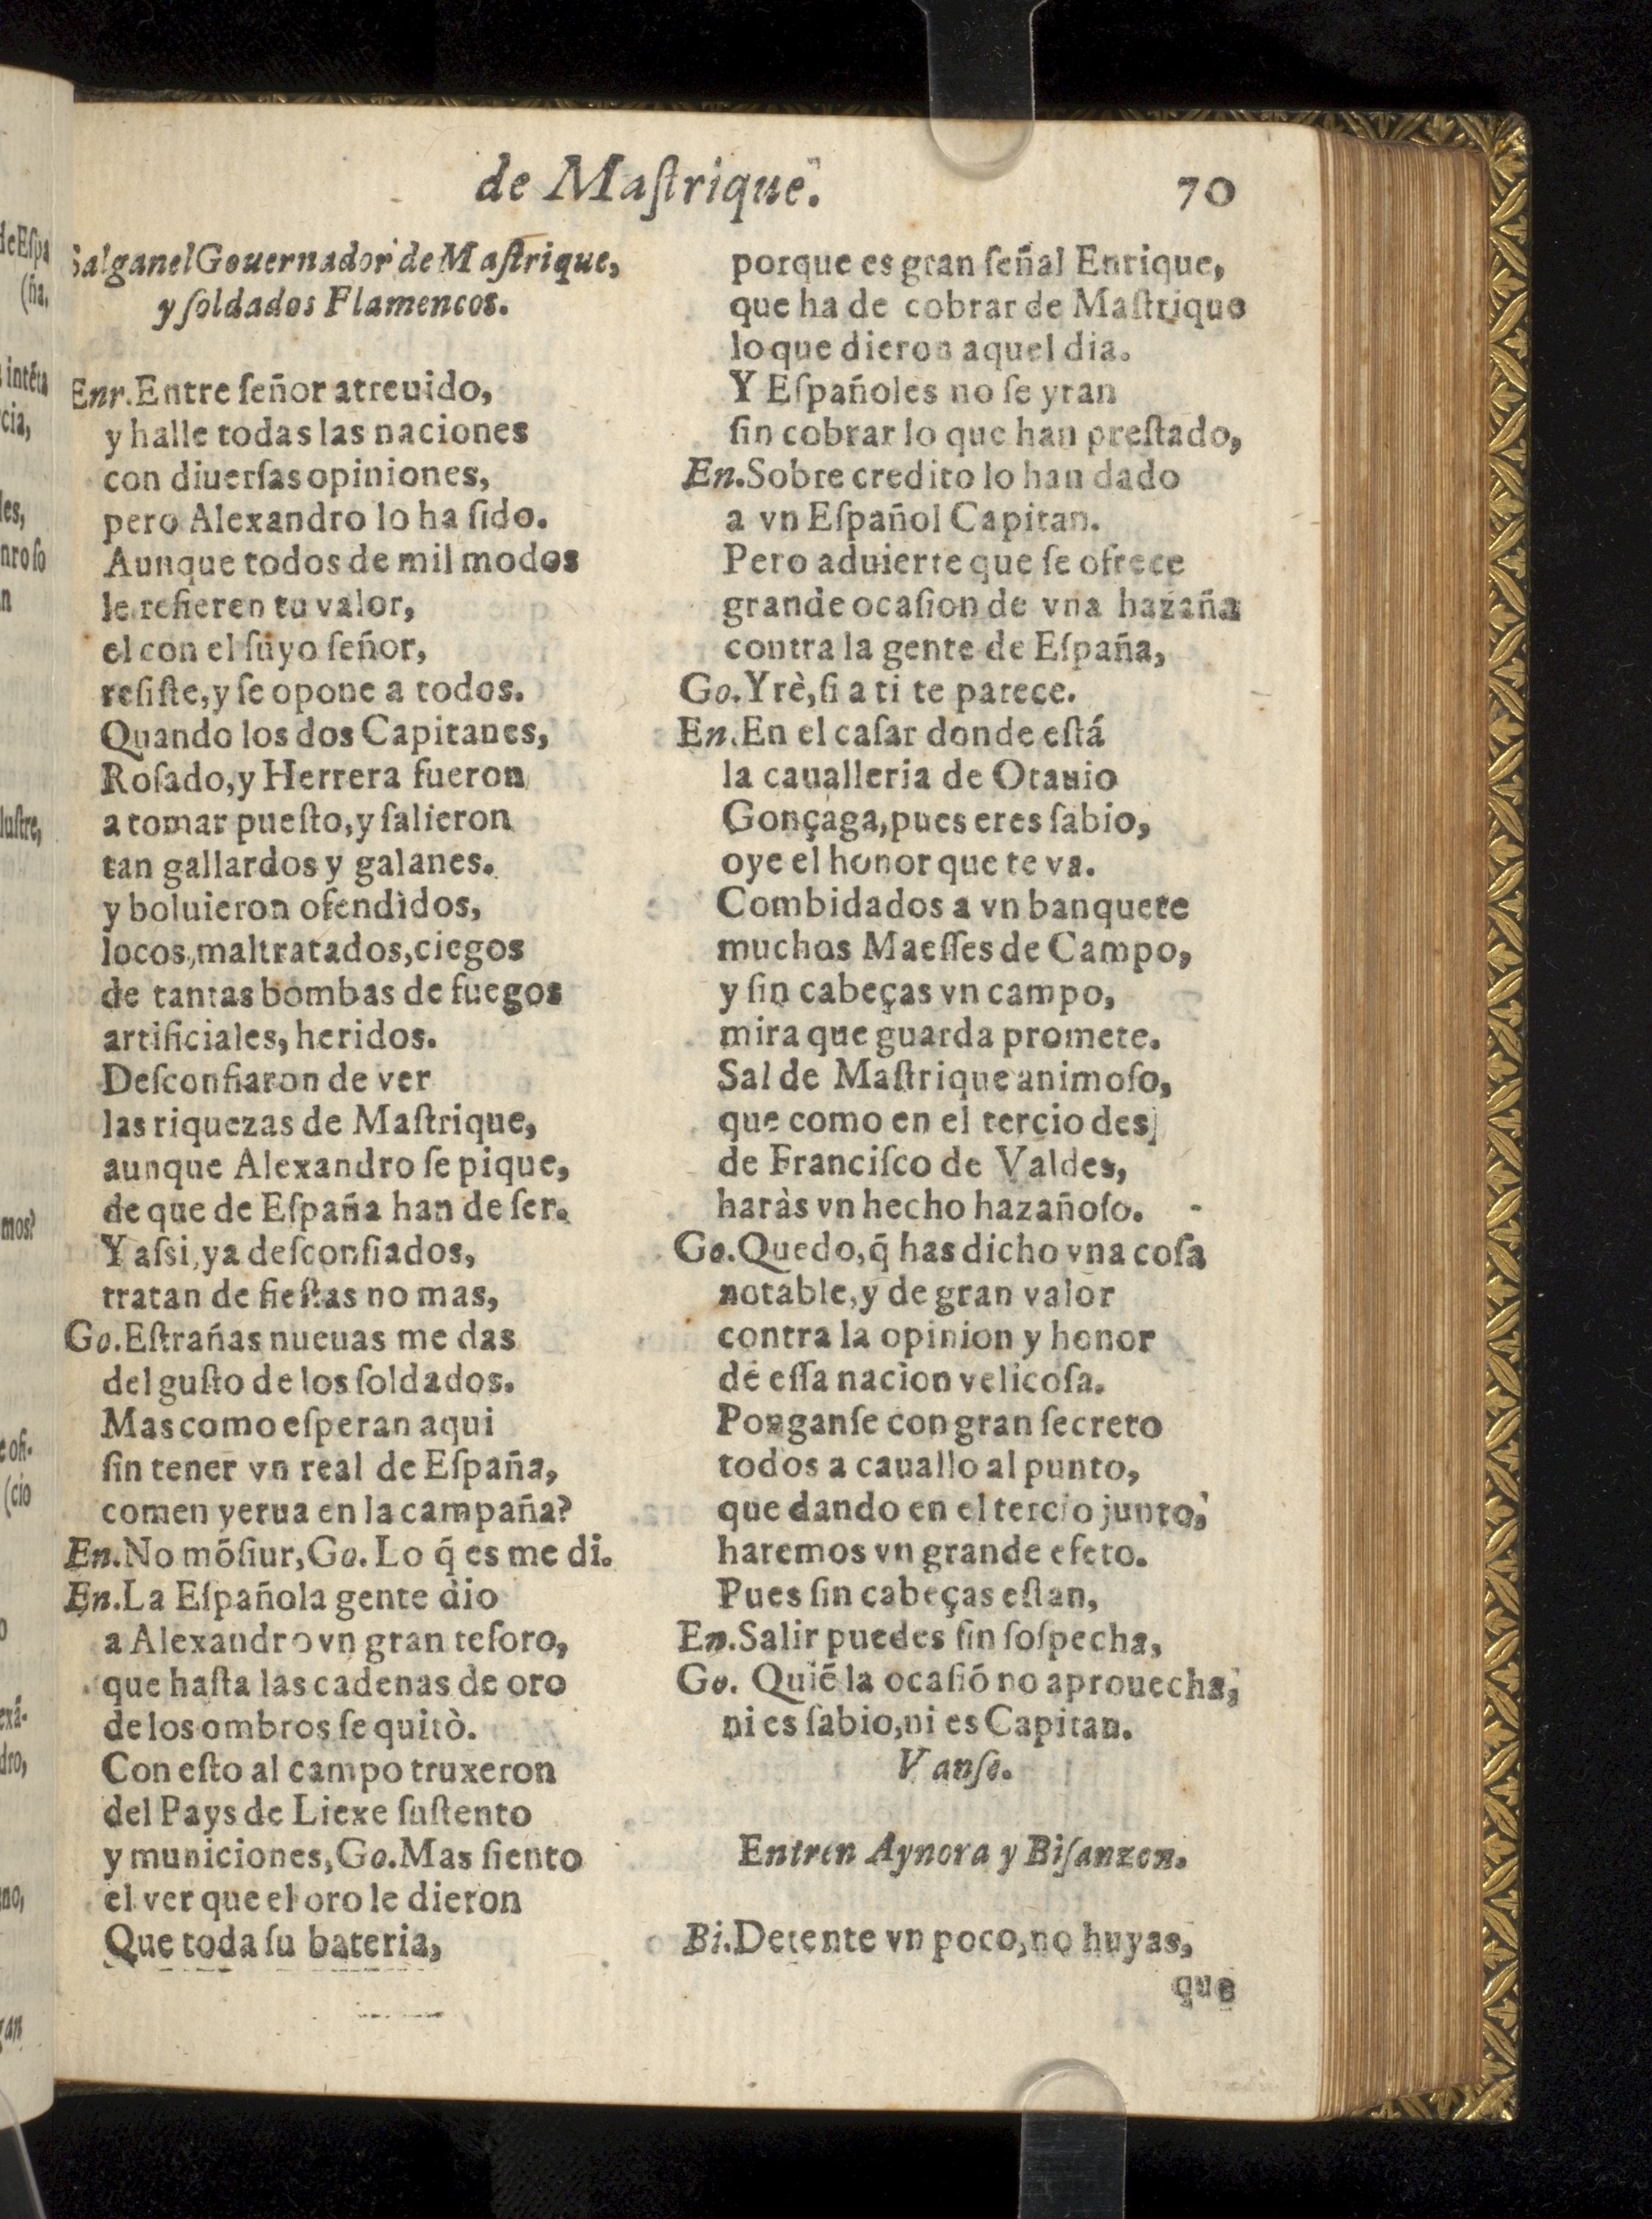 de Maſtrique.
70
Salgan el Gouernador de Maſtrique,
y ſoldados Flamencos.
Enr. Entre ſeñor atreuido,
y halle todas las naciones
con diuerſas opiniones,
pero Alexandro lo ha ſido.
Aunque todos de mil modos
le refieren tu valor,
el con el ſuyo ſeñor,
reſiſte, y ſe opone a todos.
Quando los dos Capitanes,
Roſado, y Herrera fueron
a tomar pueſto, y ſalieron
tan gallardos y galanes.
y boluieron ofendidos,
locos, maltratados, ciegos
de tantas bombas de fuegos
artificiales, heridos.
Deſconfiaron de ver
las riquezas de Maſtrique,
aunque Alexandro ſe pique,
de que de Eſpaña han de ſer.
Y aſsi, ya deſconfiados,
tratan de fieſtas no mas,
Go. Eſtrañas nueuas me das
del guſto de los ſoldados.
Mas como eſperan aqui
ſin tener vn real de Eſpaña,
comen yerua en la campaña?
En. No mōſiur, Go. Lo q̃ es me di.
En. La Eſpañola gente dio
a Alexandro vn gran teſoro,
que haſta las cadenas de oro
de los ombros ſe quitò.
Con eſto al campo truxeron
del Pays de Liexe ſuſtento
y municiones, Go. Mas ſiento
el ver que el oro le dieron
Que toda ſu bateria,
porque es gran ſeñal Enrique,
que ha de cobrar de Maſtrique
lo que dieron aquel dia.
Y Eſpañoles no ſe yran
ſin cobrar lo que han preſtado,
En. Sobre credito lo han dado
a vn Eſpañol Capitan.
Pero aduierte que ſe ofrece
grande ocaſion de vna hazaña
contra la gente de Eſpaña,
Go. Yrè, ſi a ti te parece.
En. En el caſar donde eſtá
la caualleria de Otauio
Gonçaga, pues eres ſabio,
oye el honor que te va.
Combidados a vn banquete
muchos Maeſſes de Campo,
y ſin cabeças vn campo,
mira que guarda promete.
Sal de Maſtrique animoſo,
que como en el tercio des
de Franciſco de Valdes,
haràs vn hecho hazañoſo.
Go. Quedo, q̃ has dicho vna coſa
notable, y de gran valor
contra la opinion y honor
de eſſa nacion velicoſa.
Ponganſe con gran ſecreto
todos a cauallo al punto,
que dando en el tercio junto,
haremos vn grande efeto.
Pues ſin cabeças eſtan,
En. Salir puedes ſin ſoſpecha,
Go. Quiē la ocaſiō no aprouecha,
ni es ſabio, ni es Capitan.
Vanſe.
Entren Aynora y Biſanzon.
Bi. Detente vn poco, no huyas,
que